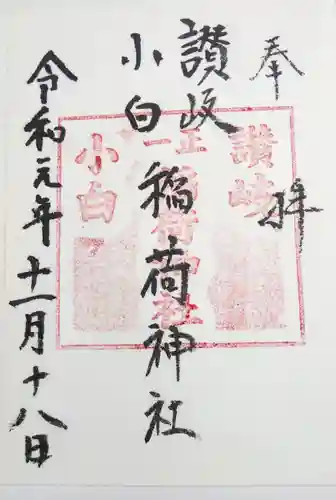 奉拝
讃岐
小白稲荷神社
令和元年十一月十八日
讃岐
正一
稲荷神社
小白